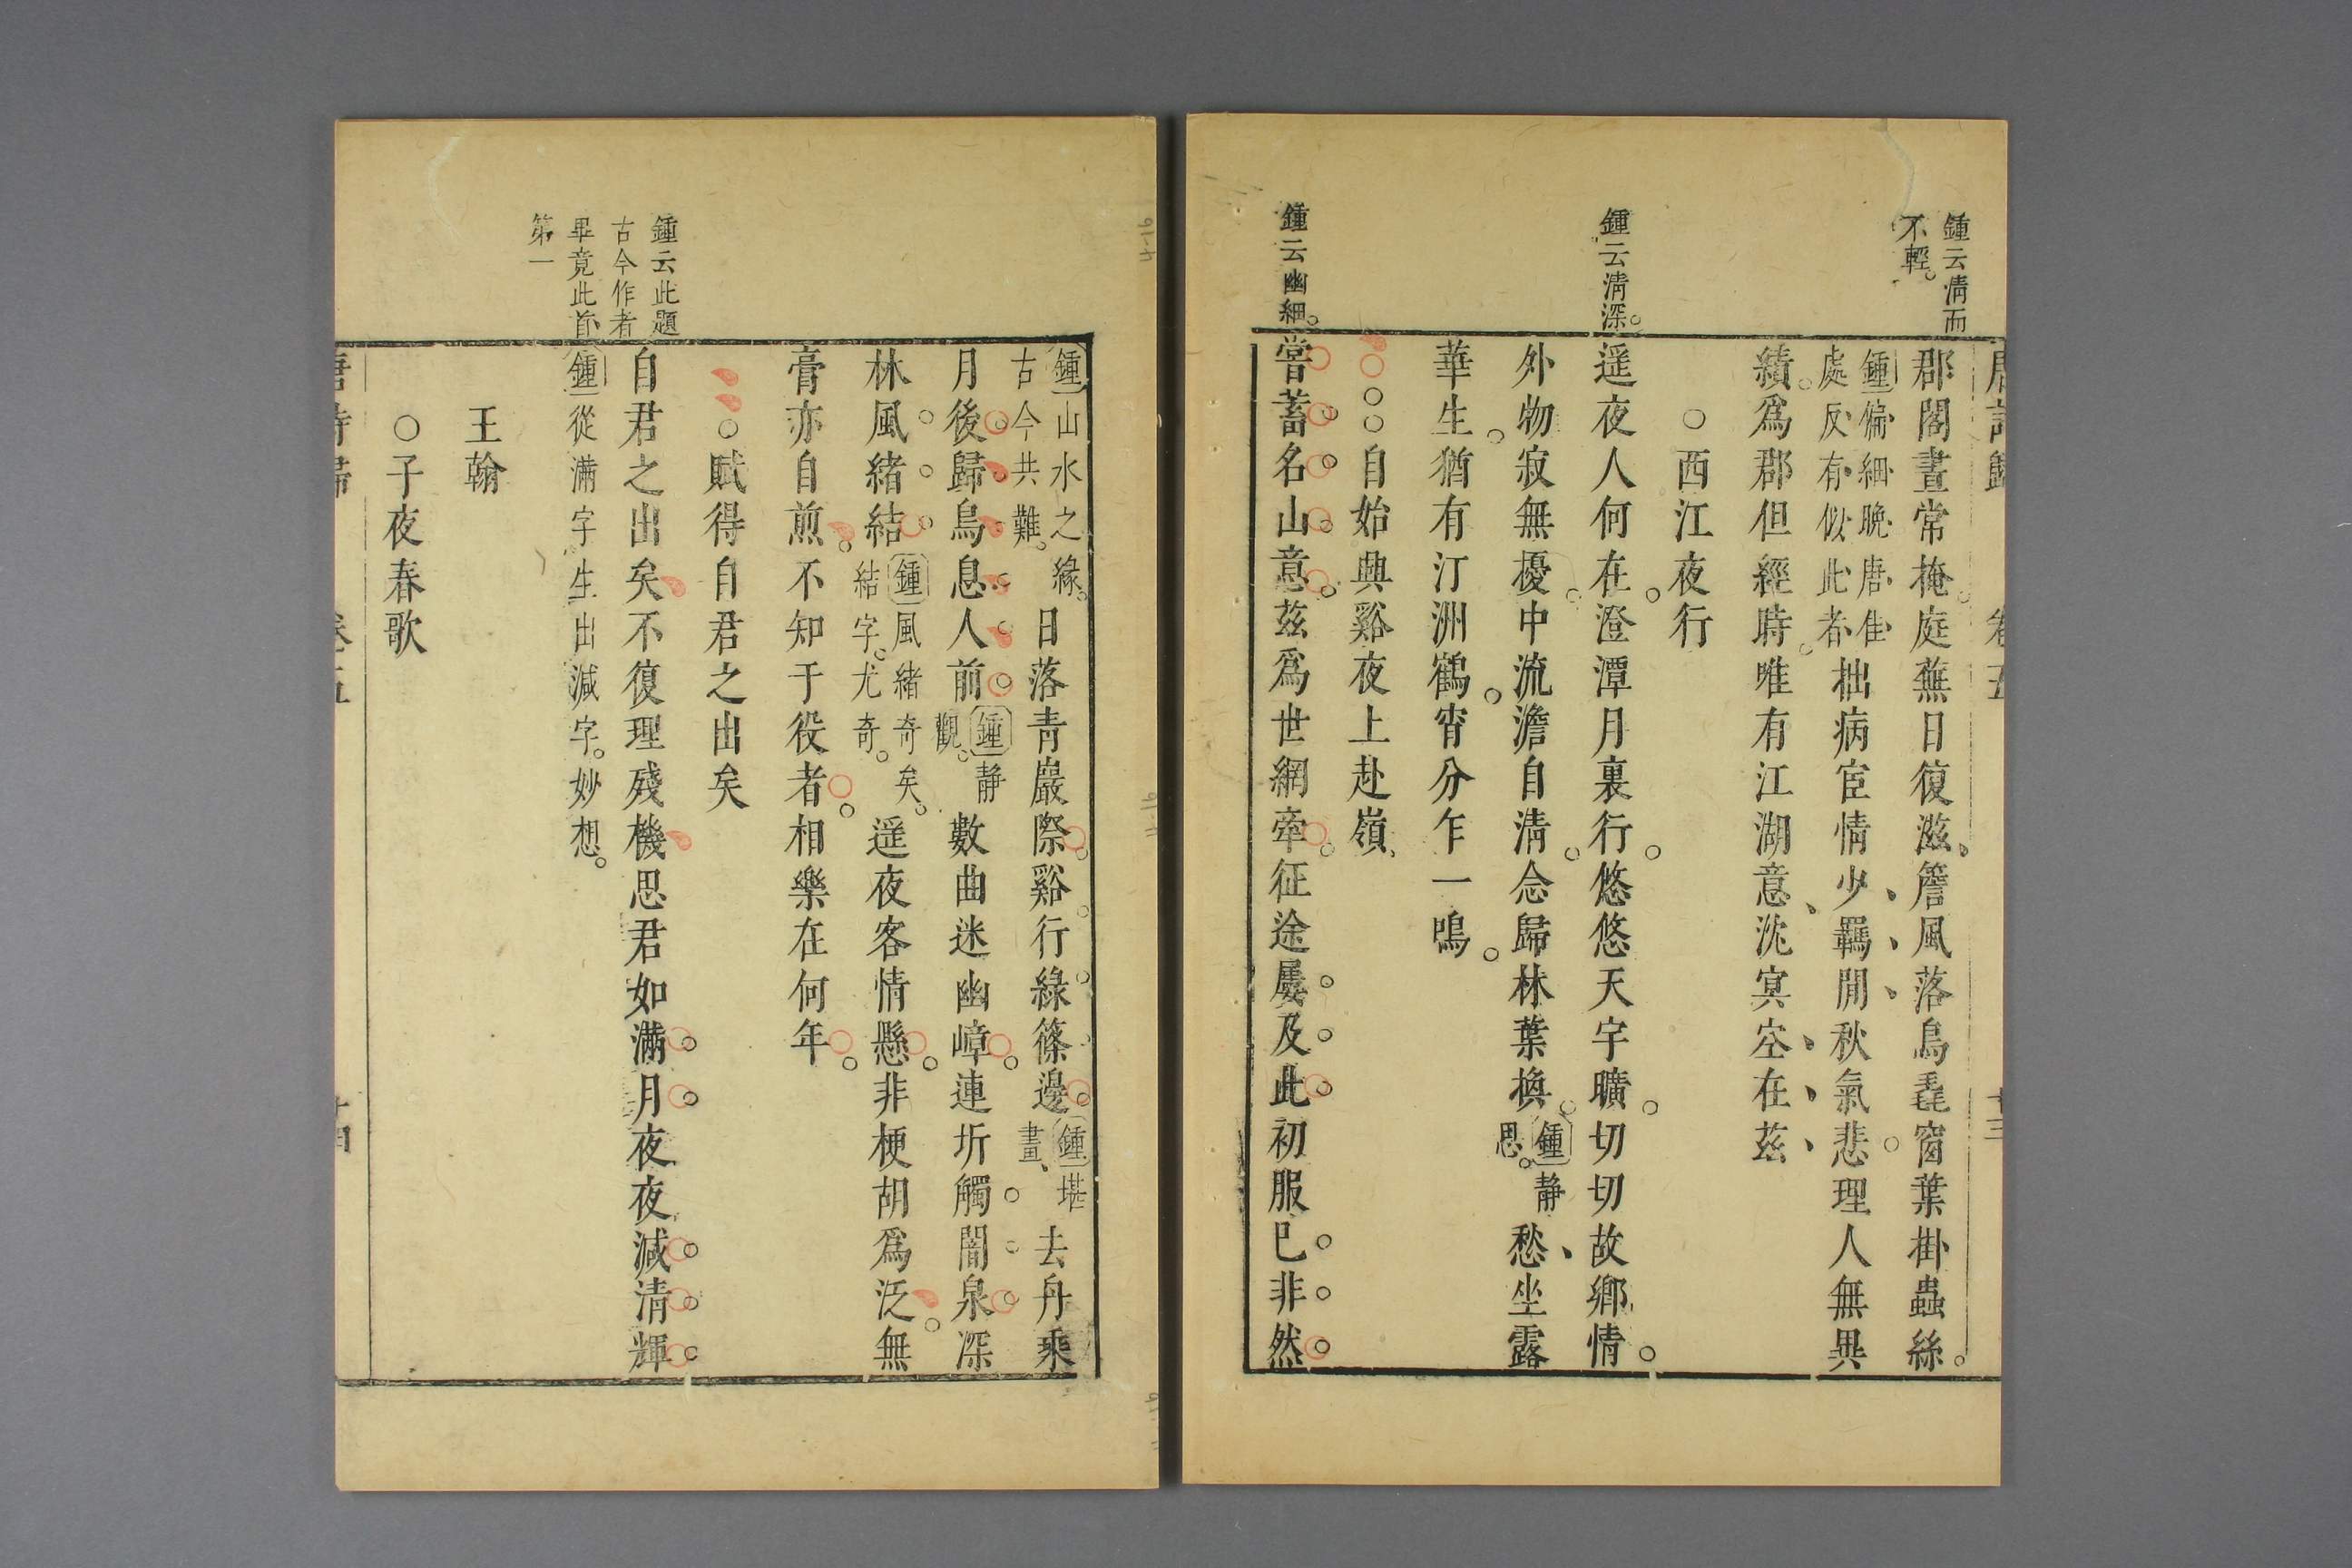 鍾云清而
不輕
唐詩歸 卷五 十三
郡閣晝常掩庭蕪日復滋簷風落鳥毳窗葉掛蟲絲
鍾偏細晚唐佳
處反有似此者
拙病宦情少羈閒秋氣悲理人無異
績爲郡但經時唯有江湖意沈冥空在茲
○西江夜行
鍾云清深
遥夜人何在澄潭月裏行悠悠天宇曠切切故鄉情
外物寂無擾中流澹自清念歸林葉換
鍾靜
思
愁坐露
華生猶有汀洲鶴宵分乍一鳴
○○自始興谿夜上赴嶺
鍾云幽細
嘗蓄名山意茲爲世網牽征途屢及此初服已非然
鍾山水之緣
古今共難
日落青巖際谿行綠篠邊
鍾堪
畫
去舟乘
月後歸鳥息人前
鍾靜
觀
數曲迷幽嶂連圻觸闇泉深
林風緒結
鍾風緒奇矣
結字尤奇
遥夜客情懸非梗胡爲泛無
膏亦自煎不知于役者相樂在何年
○賦得自君之出矣
鍾云此題
古今作者
畢竟此首
第一
自君之出矣不復理殘機思君如滿月夜夜減清輝
鍾從滿字生出減字妙想
王翰
○子夜春歌
唐詩歸 卷五 十四